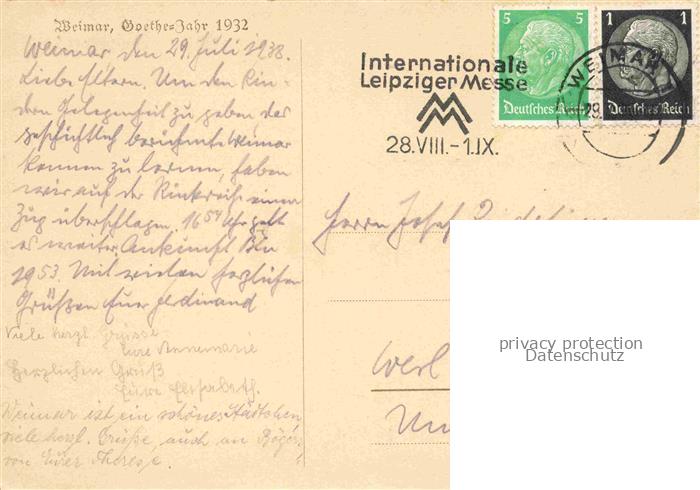 Weimar, Goethe-Jahr 1932
Weimar den 29. Juli 1938.
Liebe Eltern. Um den Kin-
dern Gelegenheit zu geben das
geschichtlich berühmte Weimar
kennen zu lernen, haben
wir auf der Rückreise einen
Zug überschlagen. 16⁵⁴ Uhr geht
es weiter. Ankunft Bln
1953. Mit vielen herzlichen
Grüßen Euer Ferdinand
Viele herzl. Grüsse
Eure Annemarie
Herzlichen Gruß
Eure Elisabeth.
Weimar ist ein schönes Städtchen
viele herzl. Grüße, auch an
von Eurer Therese.
Internationale
Leipziger Messe
MM
28.VIII.-1.IX.
5 5
Deutsches Reich
1 1
Deutsches Reich
WEIMAR
29.
Herrn Josef
Werl
privacy protection
Datenschutz